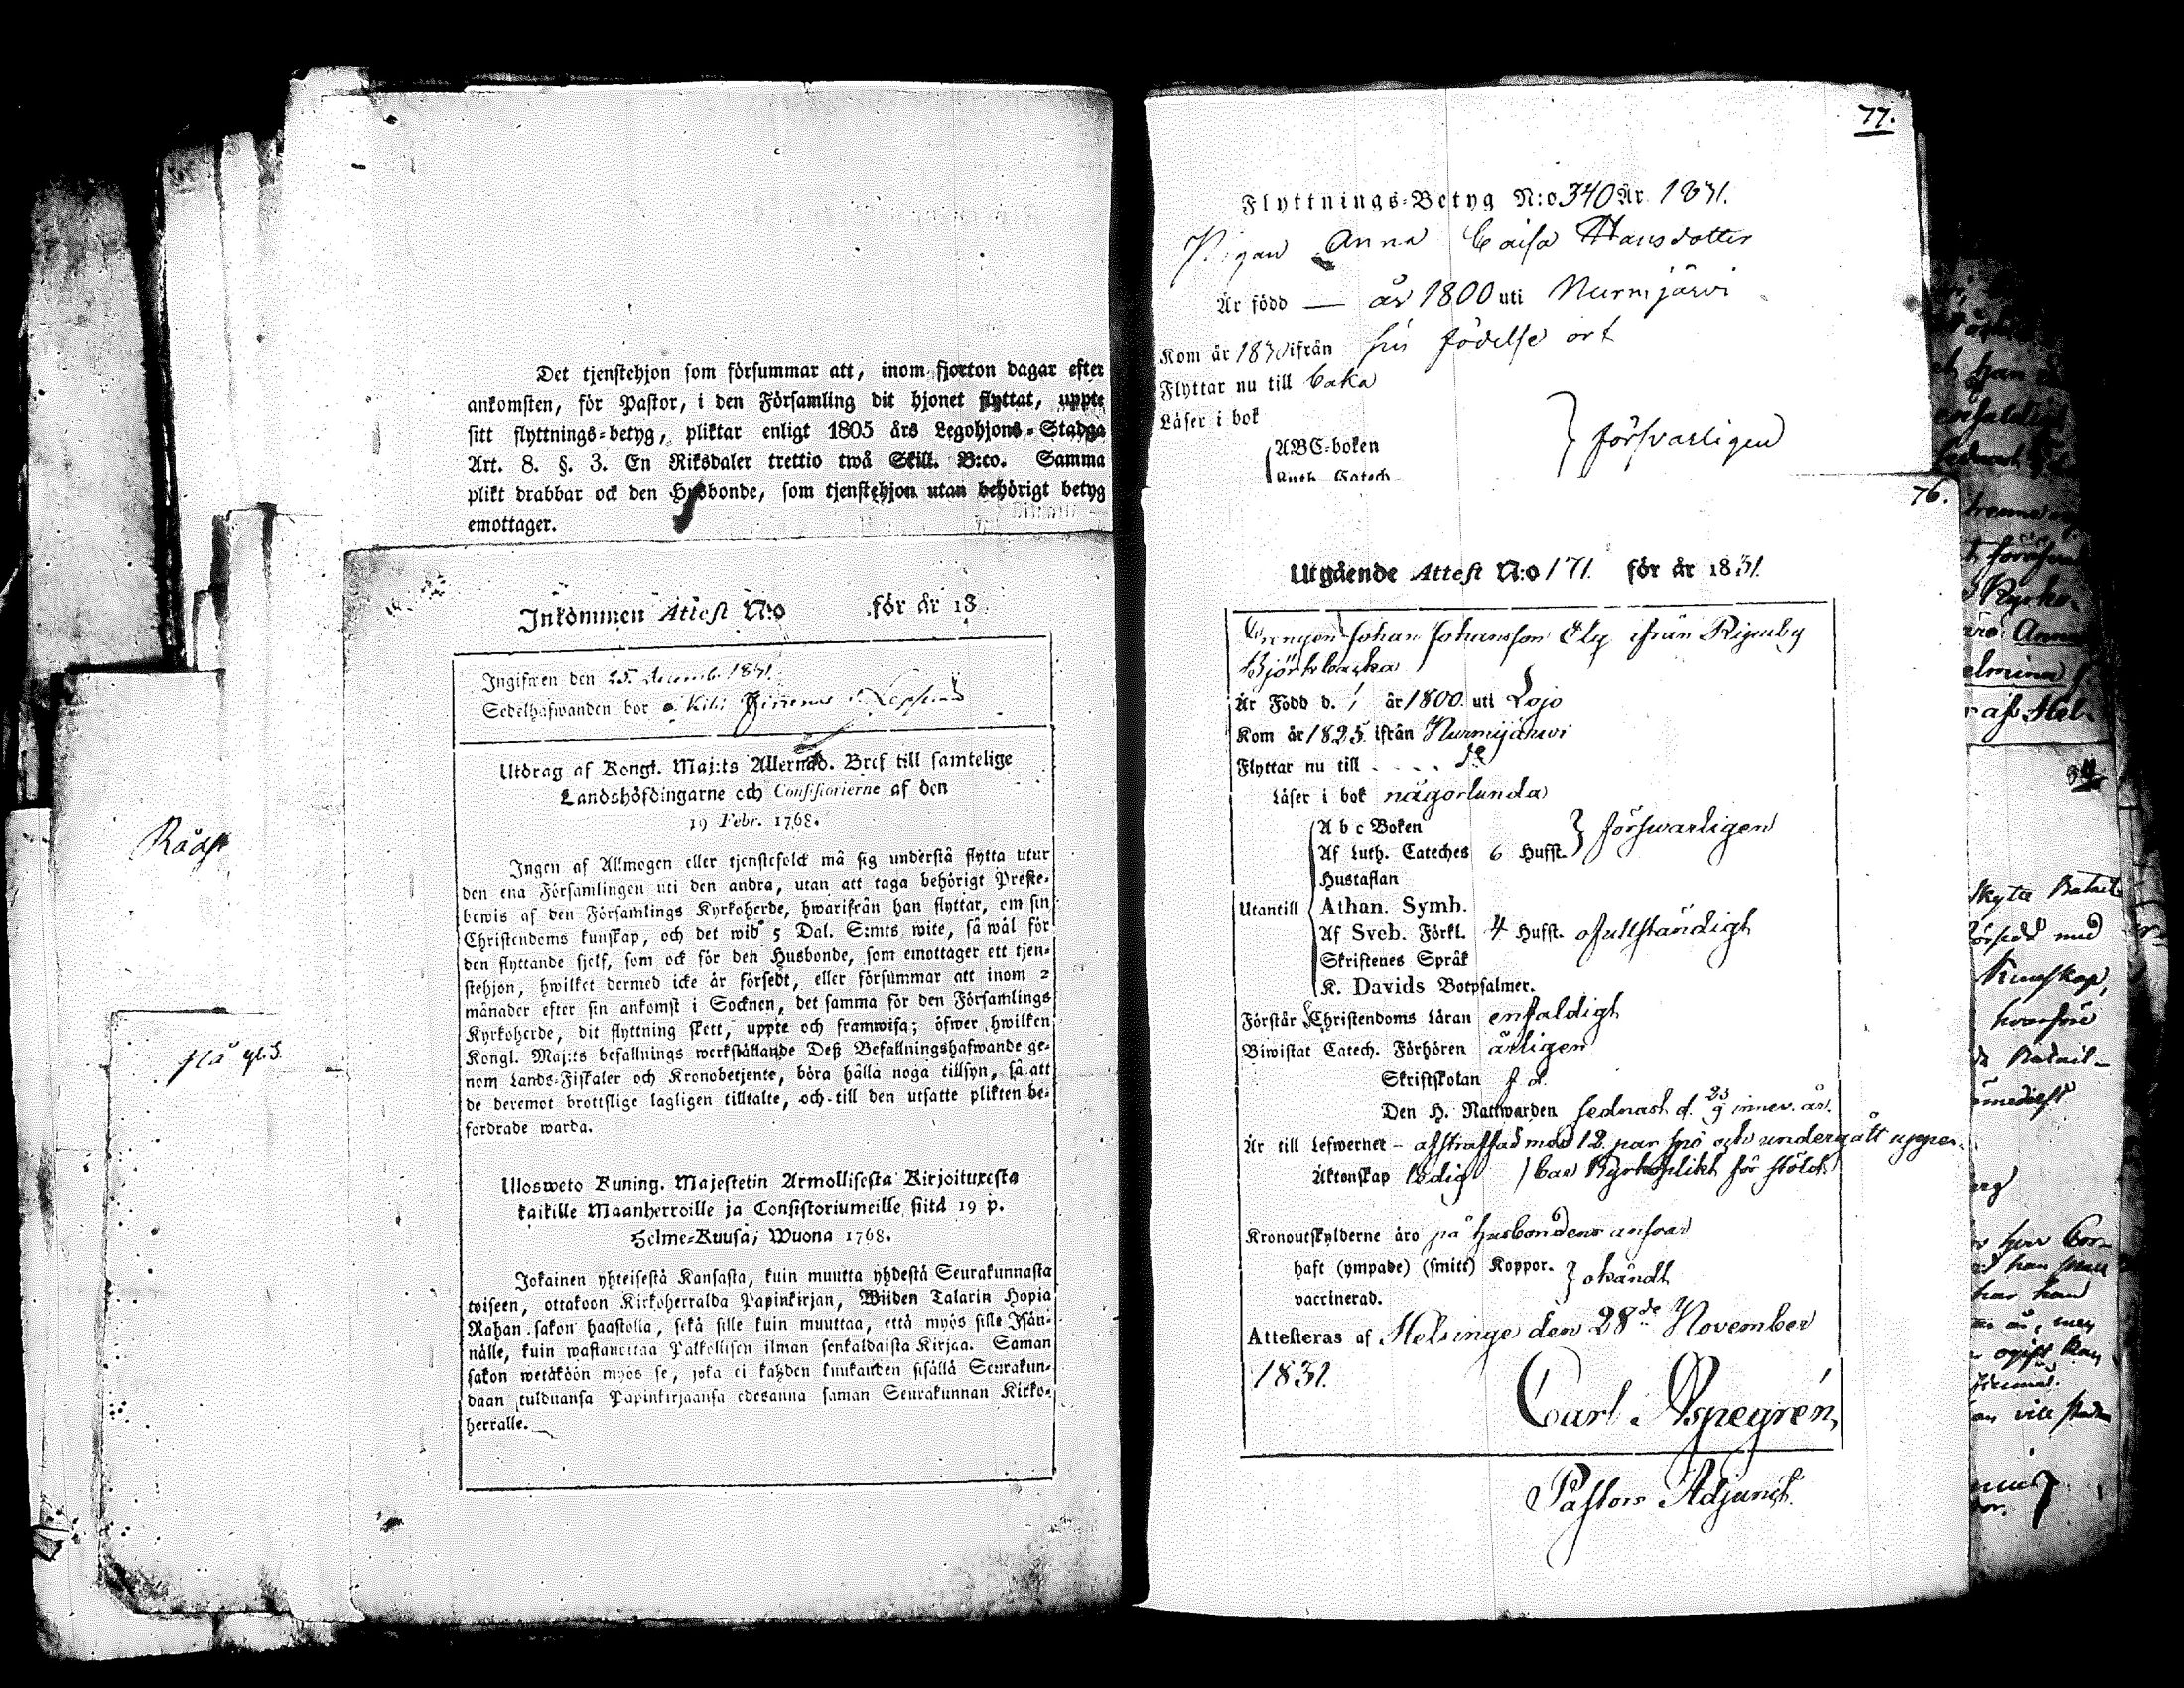 Det tjenstehjon som försummar att, inom fjorton dagar efter
ankomsten, för Pastor, i den Församling dit hjonet flyttat, uppte
sitt flyttnings-betyg, pliktar enligt 1805 års Legohjons-Stadga
Art. 8. §. 3. En Riksdaler trettio twå Skill. B:co. Samma
plikt drabbar ock den Husbonde, som tjenstehjon utan behörigt betyg
emottager.
Inkommen Attest N:o för år 18
Ingifwen den 25 decemb. 1831.
Sedelhafwanden bor
Utdrag af Kongl. Maj:ts Allernåd. Bref till samtelige
Landshöfdingarne och Consistorierne af den
19 Febr. 1768.
Ingen af Allmogen eller tjenstefolck må sig understå flytta utur
den ena Församlingen uti den andra, utan att taga behörigt Preste-
bewis af den Församlings Kyrkoherde, hwarifrån han flyttar, om sin
Christendoms kunskap, och det wid 5 Dal. S:mts wite, så wäl för
den flyttande sjelf, som ock för den Husbonde, som emottager ett tjen-
stehjon, hwilket dermed icke är försedt, eller försummar att inom 2
månader efter sin ankomst i Socknen, det samma för den Församlings
Kyrkoherde, dit flyttning skett, uppte och framwisa; öfwer hwilken
Kongl. Maj:ts befallnings werkställande Deß Befallningshafwande ge-
nom Lands-Fiskaler och Kronobetjente, böra hålla noga tillsyn, så att
de deremot brottslige lagligen tilltalte, och till den utsatte plikten be-
fordrade warda.
Ulosweto Kuning. Majestetin Armollisesta Kirjoituxesta
kaikille Maanherroille ja Consistoriumeille, siitä 19 p.
Helme-Kuusa, Wuona 1768.
Jokainen yhteisestä Kansasta, kuin muutta yhdestä Seurakunnasta
toiseen, ottakoon Kirkoherralda Papinkirjan, Wiiden Talarin Hopia
Rahan sakon haastolla, sekä sille kuin muuttaa, että myös sille Isän-
nälle, kuin wastanottaa Palkollisen ilman senkaldaista Kirjaa. Saman
sakon wetäköön myös se, joka ei kahden kuukauden sisällä Seurakun-
daan tulduansa Papinkirjaansa edesanna saman Seurakunnan Kirko-
herralle.
Rådst
77.
Flyttnings-Betyg N:o 340 År 1831.
Pigan Anna Caisa Hansdotter
Är född — år 1800 uti Nurmjärvi
Kom år 1830 ifrån sin födelse ort
Flyttar nu till
Läser i bok
ABC-boken
försvarligen
Luth. Catech.
76.
Utgående Attest N:o 171. för år 1831.
Drengen Johan Johansson Elg ifrån
Björkbacka
Är Född d. år 1800. uti Lojo
Kom år 1825. ifrån Nurmijärvi
Flyttar nu till . . . . d:o
Läser i bok någorlunda
A b c Boken
Af Luth. Cateches 6 Hufst. försvarligen
Hustaflan
Utantill
Athan. Symb.
Af Sveb. Förkl. 4 Hufst. ofullständigt
Skriftenes Språk
K. Davids Botpsalmer.
Förstår Christendoms Läran enfaldigt
Biwistat Catech. Förhören årligen
Skriftskolan
Den H. Nattwarden sednast d. 25/9 innev. år.
Är till Lefwernet - afstraffad med 12 par spö och undergått uppen-
Äktenskap ledig bar Kyrkoplikt för stöld
Kronoutskylderne äro på husbondens ansvar
haft (ympade) (smitt) Koppor. okändt
vaccinerad.
Attesteras af Helsinge den 28de November
1831.
Carl Aspegrén,
Pastors Adjunct.